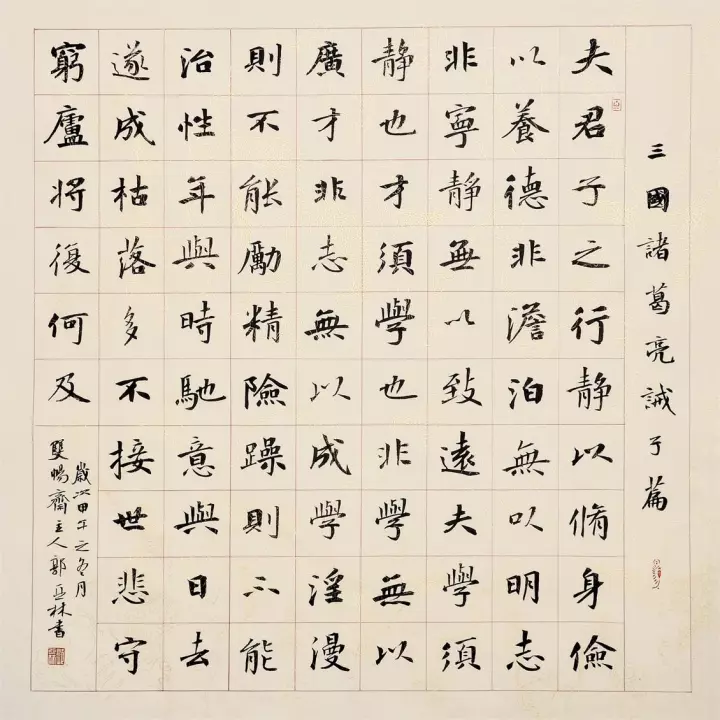 三國諸葛亮誡子篇
夫君子之行靜以脩身儉
以養德非澹泊無以明志
非寧靜無以致遠夫學須
靜也才須學也非學無以
廣才非志無以成學淫漫
則不能勵精險躁則不能
治性年與時馳意與日去
遂成枯落多不接世悲守
窮廬將復何及
歲次甲午之冬月
雙暢齋主人郭亞林書